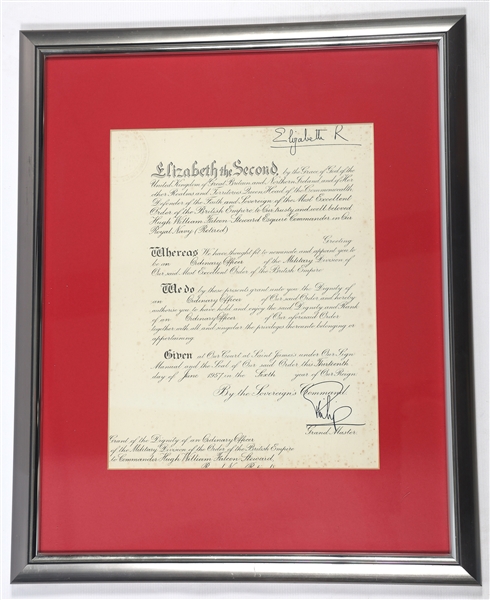 Elizabeth R
Elizabeth the Second, by the Grace of God of the
United Kingdom of Great Britain and Northern Ireland and of Her
other Realms and Territories Queen, Head of the Commonwealth,
Defender of the Faith and Sovereign of the Most Excellent
Order of the British Empire to Our trusty and well beloved
Hugh William Falcon Steward Esquire Commander in Our
Royal Navy (Retired)
Greeting
Whereas We have thought fit to nominate and appoint you to
be an Ordinary Officer of the Military Division of
Our said Most Excellent Order of the British Empire
We do by these presents grant unto you the Dignity of
an Ordinary Officer of Our said Order and hereby
authorise you to have hold and enjoy the said Dignity and Rank
of an Ordinary Officer of Our aforesaid Order
together with all and singular the privileges thereunto belonging or
appertaining.
Given at Our Court at Saint James's under Our Sign
Manual and the Seal of Our said Order this Thirteenth
day of June 1957 in the Sixth year of Our Reign
By the Sovereign's Command.
Philip
Grand Master.
Grant of the Dignity of an Ordinary Officer
of the Military Division of the Order of the British Empire
to Commander Hugh William Falcon Steward,
Royal Navy (Retired)